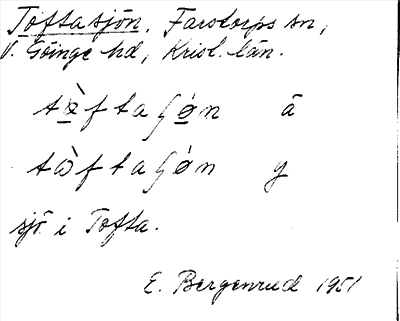 Toftasjön. Farstorps sn,
V. Göinge hd, Krist. län.
tö̀ftaʃön ä
tòftaʃön y
sjö i Tofta.
E. Bergenrud 1951